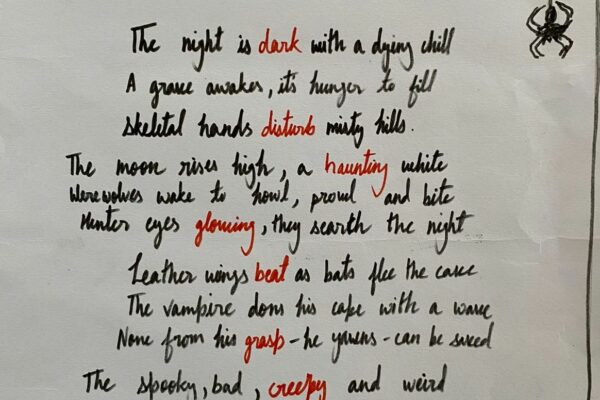 The night is dark with a dying chill
A grave awakes, it's hunger to fill
Skeletal hands disturb misty hills.
The moon rises high, a haunting white
Werewolves wake to howl, prowl and bite
Hunter eyes glowing, they search the night
Leather wings beat as bats flee the cave
The vampire dons his cape with a wave
None from his grasp - he yawns - can be saved
The spooky, bad, creepy and weird